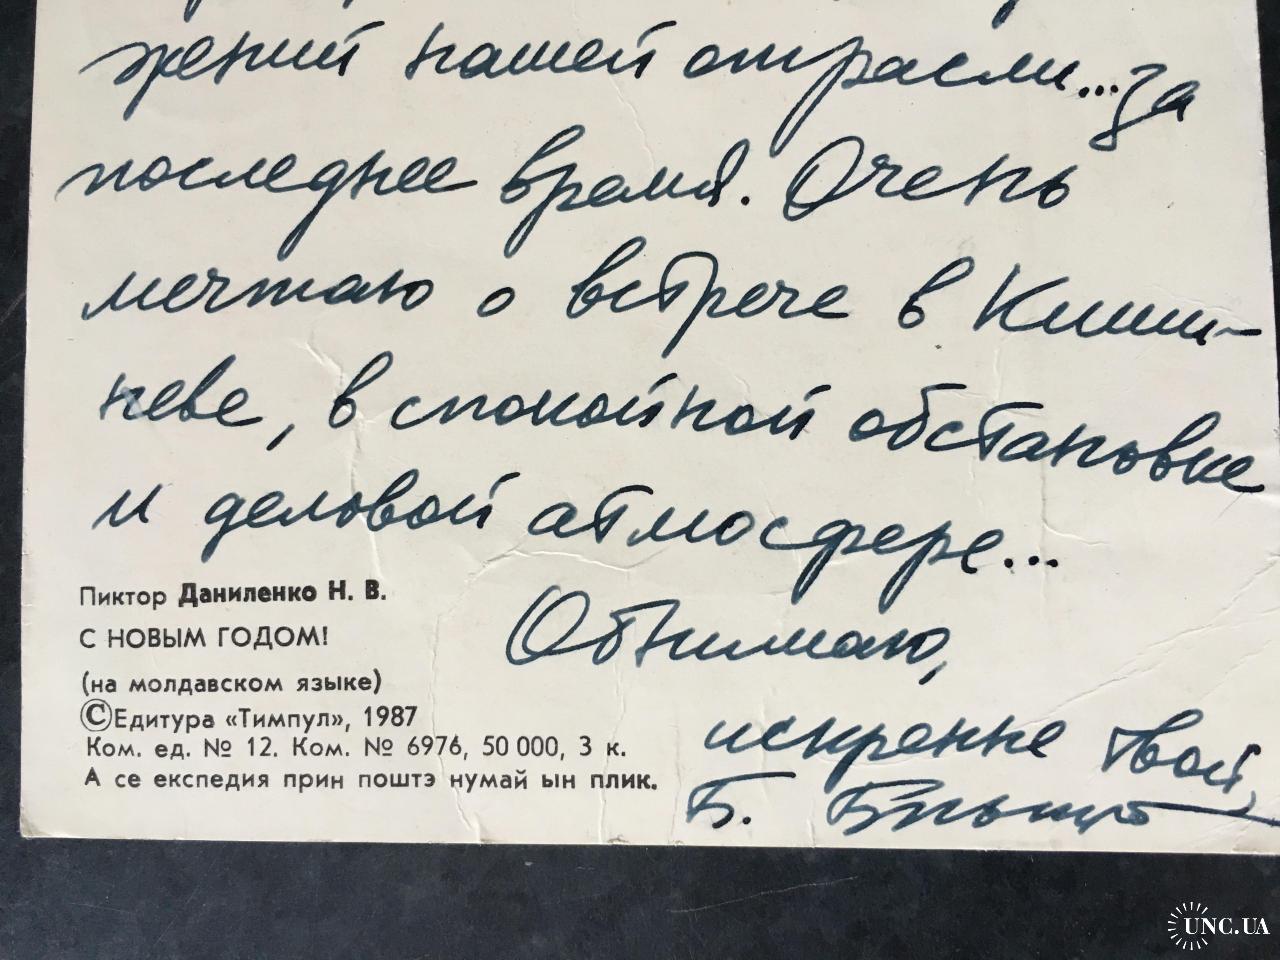 жений нашей отрасли... за
последнее время. Очень
мечтаю о встрече в Киши-
неве, в спокойной обстановке
и деловой атмосфере...
Обнимаю,
искренне твой,
Б.
Пиктор Даниленко Н. В.
С НОВЫМ ГОДОМ!
(на молдавском языке)
©Едитура «Тимпул», 1987
Ком. ед. № 12. Ком. № 6976, 50 000, 3 к.
А се експедия прин поштэ нумай ын плик.
UNC.UA